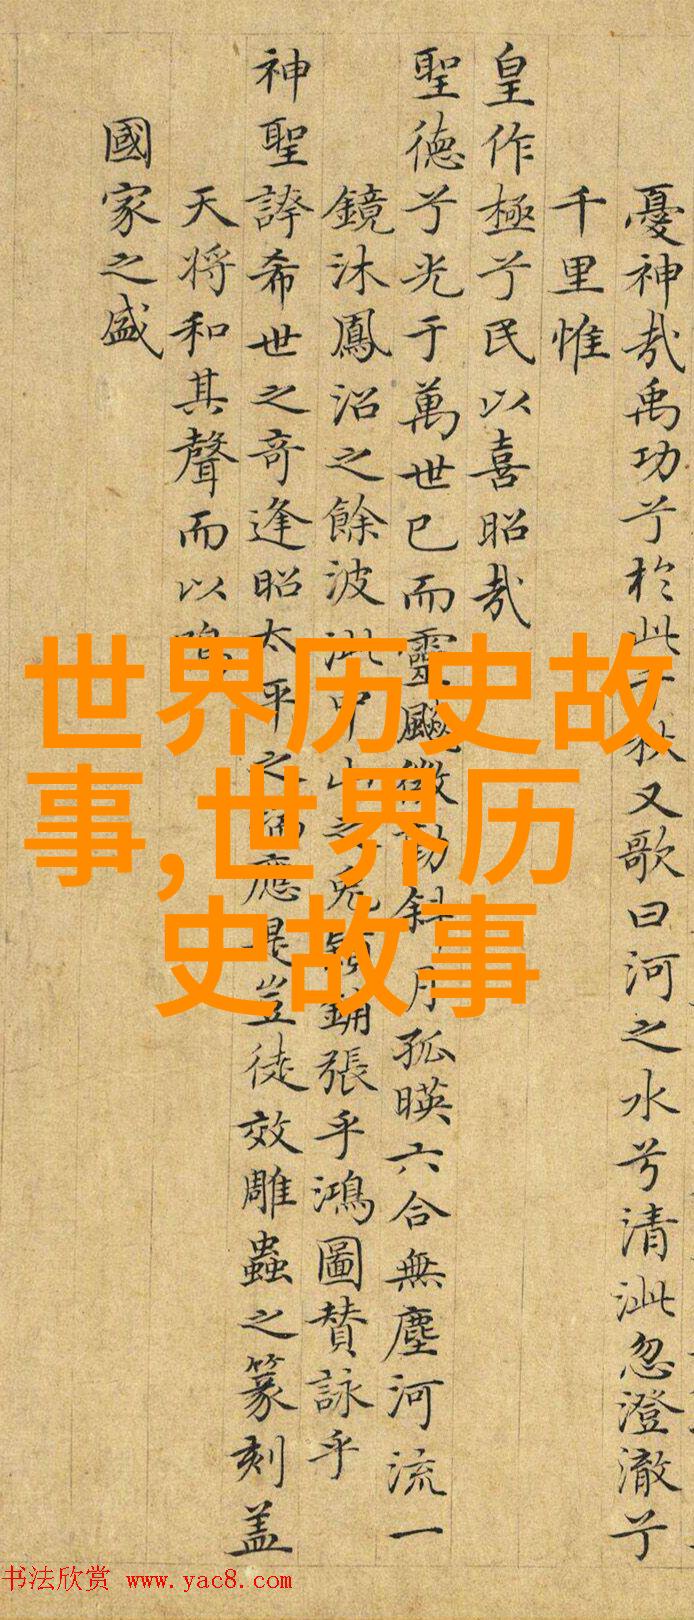 憂神哉禹功兮於此千秋又歌曰河之水兮清泚忽澄澈兮
千里惟
皇作極兮民以喜昭哉
聖德兮光于萬世已而靈飇微動斜月孤暎六合無塵河流一
鏡沐鳳沼之餘波泚中山之兔穎鋪張乎鴻圖賛詠乎
神聖誇希世之奇逢昭太平之應是豈徒效雕蟲之篆刻盖
天将和其聲而以鳴
國家之盛
世界历史故
事,世界历
史故事
书法欣赏 www.yac8.com